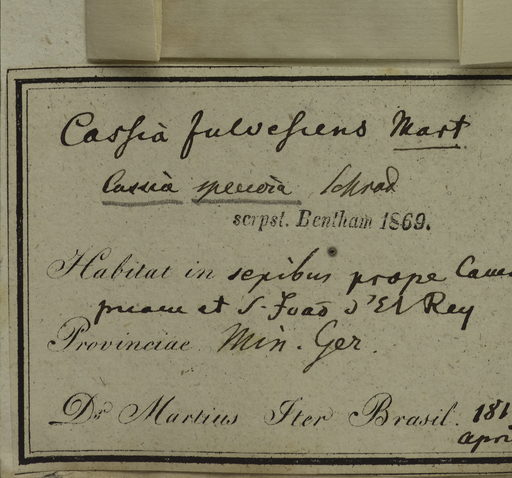 Cassia fulvescens Mart
Cassia speciosa Schrad
scrpst. Bentham 1869.
Habitat in sepibus prope
et S. Joaõ d'El Rey
Provinciae Min. Ger.
Dr. Martius Iter Brasil. 181
apri